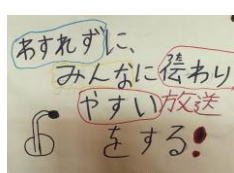 わすれずに、
みんなに伝わり
やすい放送
をする!